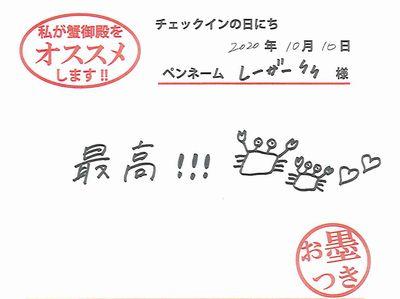 私が蟹御殿を
オススメ
します!!
チェックインの日にち
2020年 10月 10日
ペンネーム しーがーらら 様
最高!!!
お墨
つき